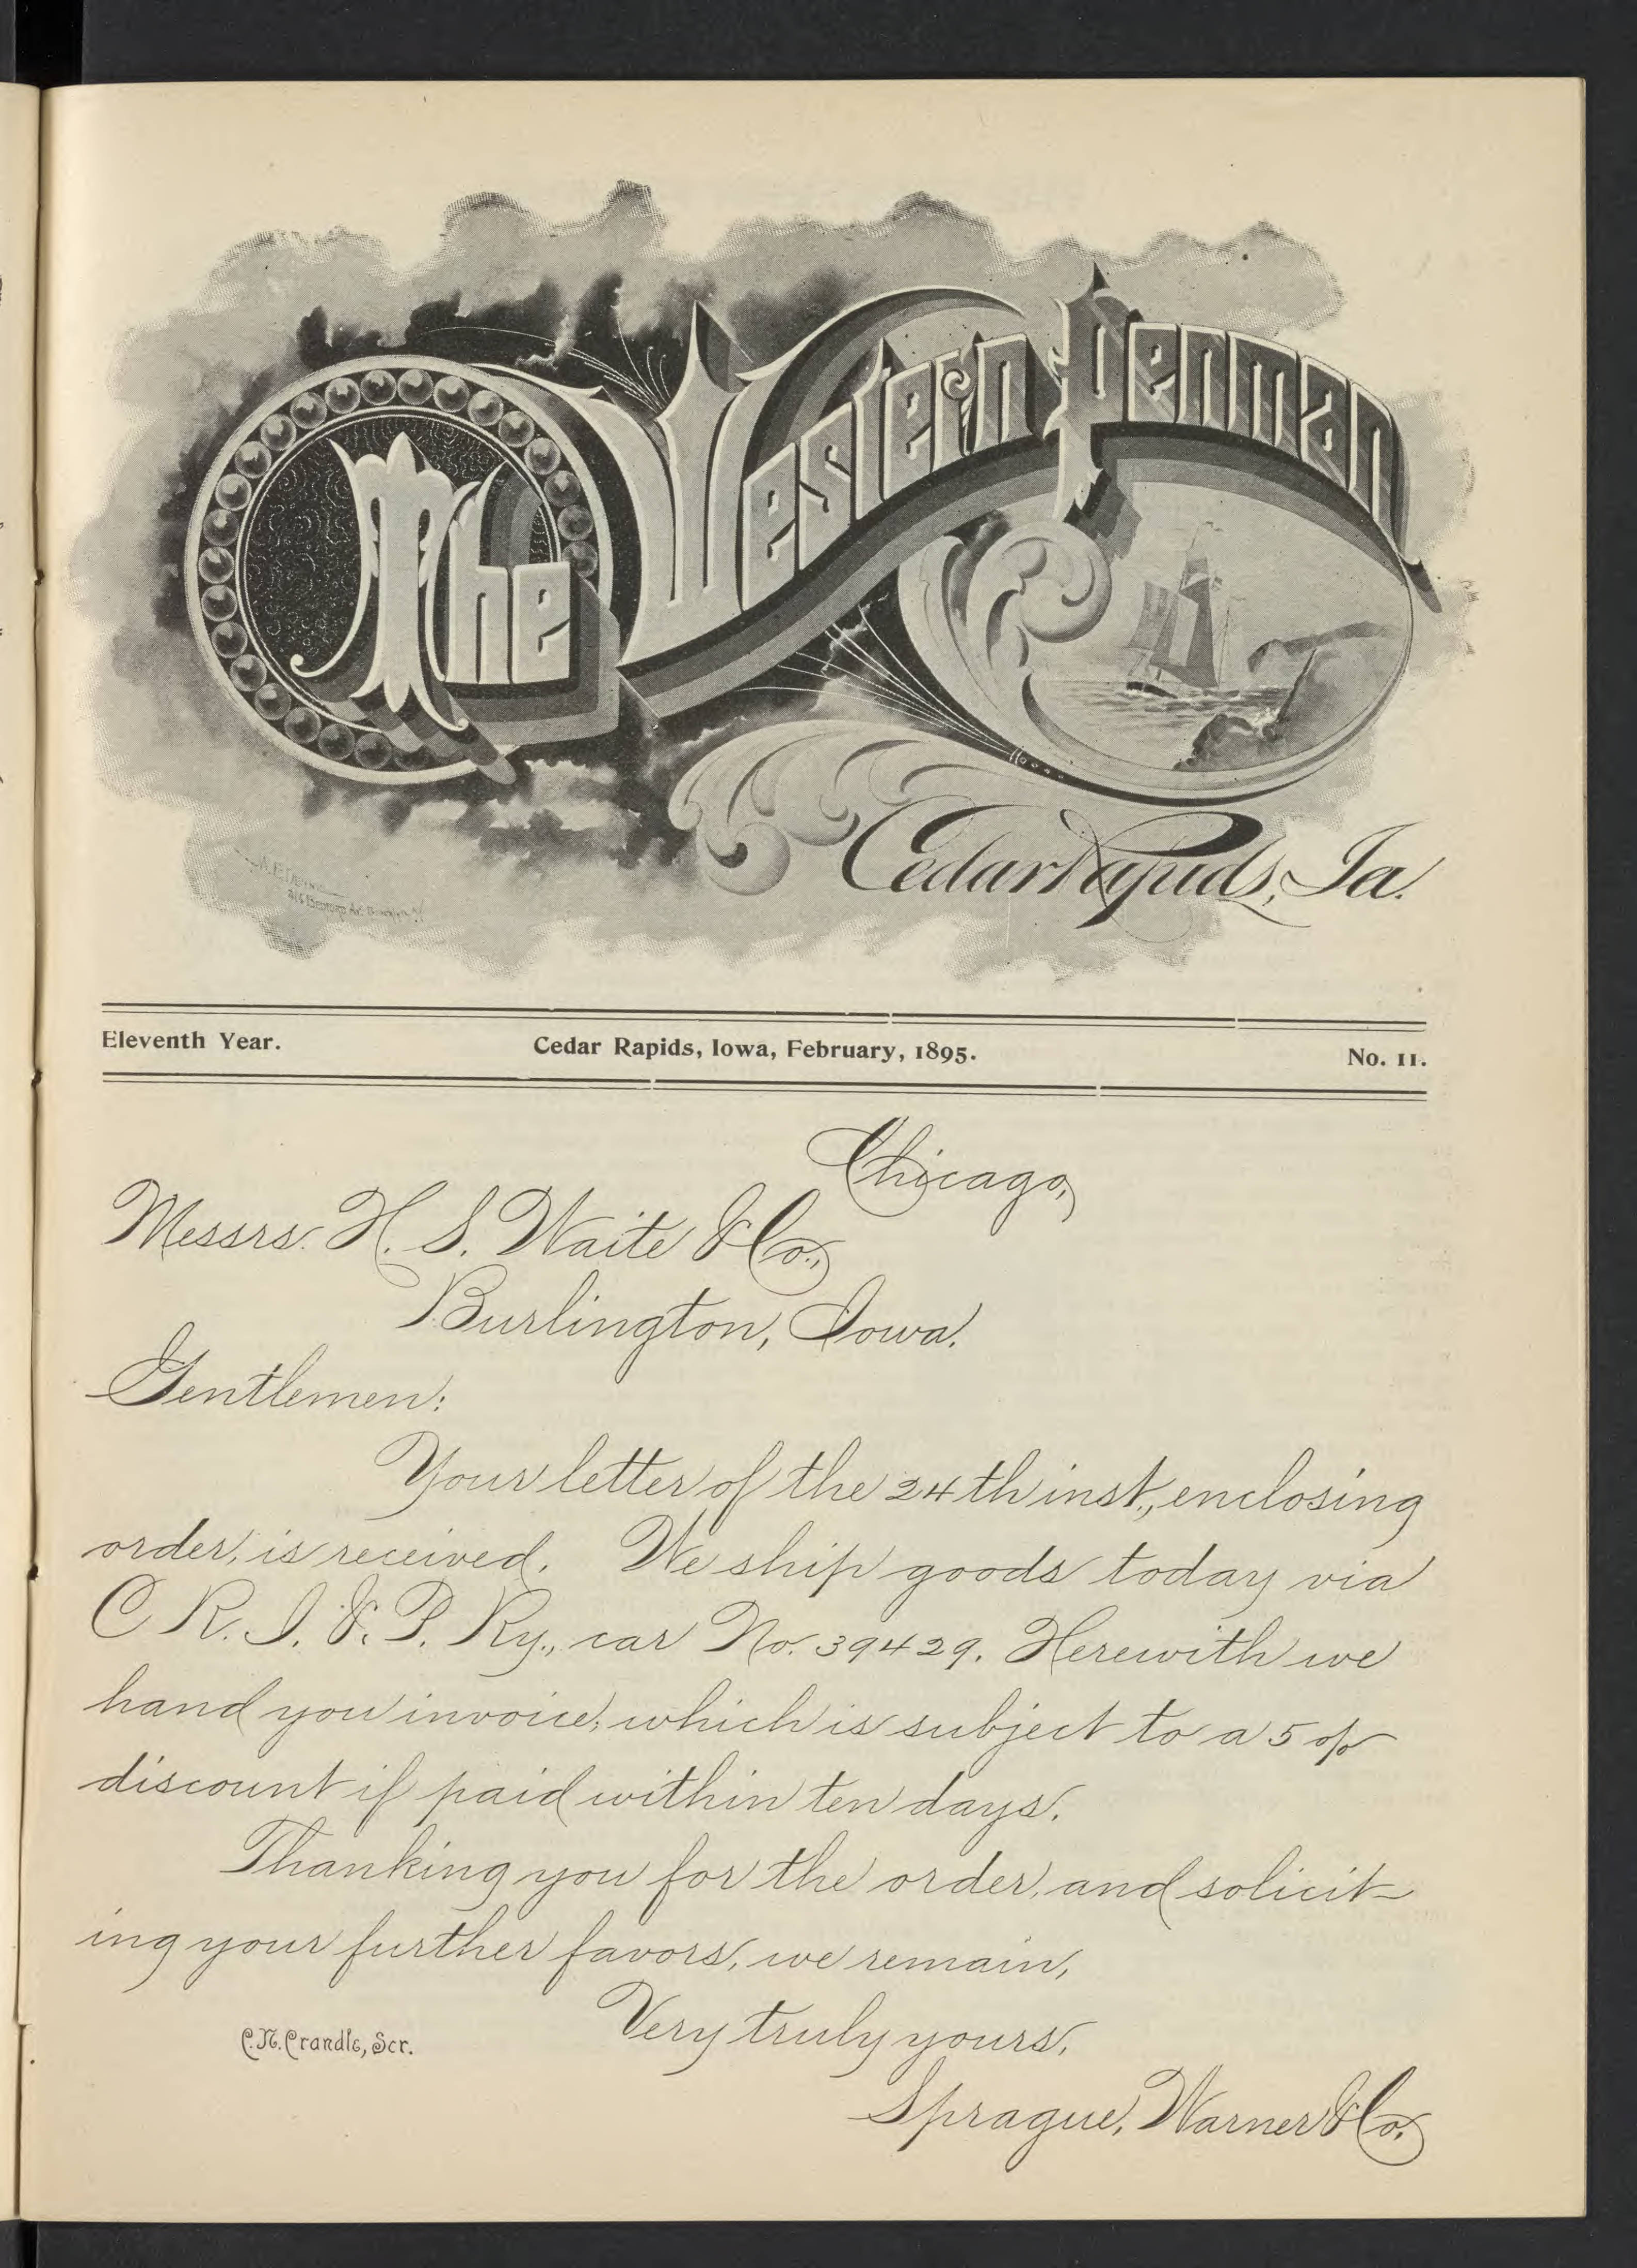 The Western Penman
Cedar Rapids, Ia.
Eleventh Year. Cedar Rapids, Iowa, February, 1895. No. 11.
Chicago,
Messrs. H. S. Waite & Co.,
Burlington, Iowa.
Gentlemen:
Your letter of the 24th inst., enclosing
order, is received. We ship goods today via
C R. I. & P. Ry., car No. 39429. Herewith we
hand you invoice, which is subject to a 5 %
discount if paid within ten days.
Thanking you for the order, and solicit-
ing your further favors, we remain,
Very truly yours,
C. N. Crandle, Scr.
Sprague, Warner & Co.